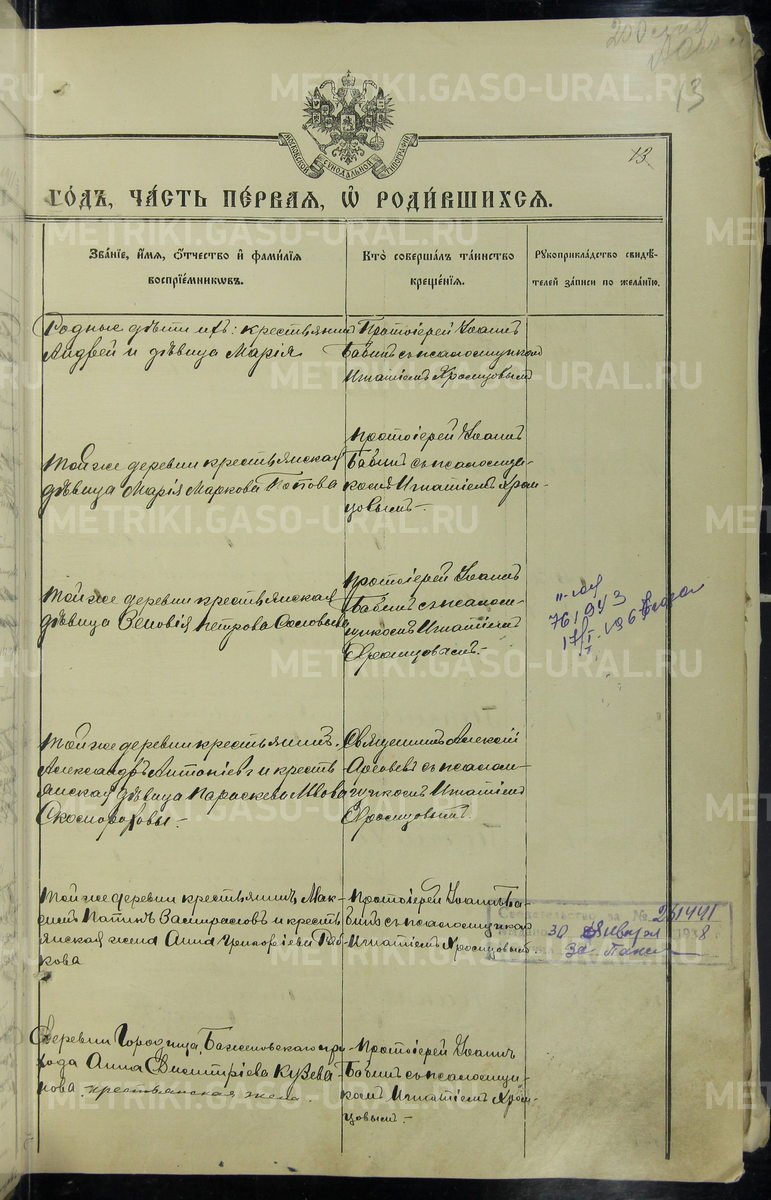 13
13
МОСКОВСКОЙ СѴНОДАЛЬНОЙ ТИПОГРАФІИ
ГО́ДЪ, ЧА́СТЬ ПЕ́РВАЯ, Ѡ҆ РОДИ́ВШИХСЯ.
Зва́нїе, и҆́мѧ, ѻ҆́тчество и҆ фами́лїѧ
воспрїе́мникѡвъ.
Кто̀ соверша́лъ та́инство
креще́нїѧ.
Рꙋкоприкла́дство свидѣ́-
телей за́писи по жела́нїю.
Родные дѣти ихъ: крестьянинъ
Андрей и дѣвица Марія
Протоіерей Іоаннъ
Бабинъ съ псаломщикомъ
Игнатіемъ Хромцовымъ
Той же деревни крестьянская
дѣвица Марія Маркова Попова
Протоіерей Іоаннъ
Бабинъ съ псаломщи-
комъ Игнатіемъ Хром-
цовымъ.
Той же деревни крестьянская
дѣвица Зеновія Петрова
Протоіерей Іоаннъ
Бабинъ съ псаломщи-
комъ Игнатіемъ
Хромцовымъ.
76,943
17
Той же деревни крестьянинъ
Александръ Антоніевъ и кресть-
янская дѣвица Параскева Львова
Скоморо​ховы.
Священникъ Алексій
съ псалом-
щикомъ Игнатіемъ
Хромцовымъ.
Той же деревни крестьянинъ Мак-
симъ и кресть-
янская жена Анна Григоріева Ряб-
кова
Протоіерей Іоаннъ Ба-
бинъ съ псаломщикомъ
Игнатіемъ Хромцовымъ.
№ 261441
30 Января 1938 г.
Деревни Городища, Баженовскаго при-
хода Анна Димитріева Кузева-
нова крестьянская жена.
Протоіерей Іоаннъ
Бабинъ съ псаломщи-
комъ Игнатіемъ Хром-
цовымъ.
METRIKI.GASO-URAL.RU